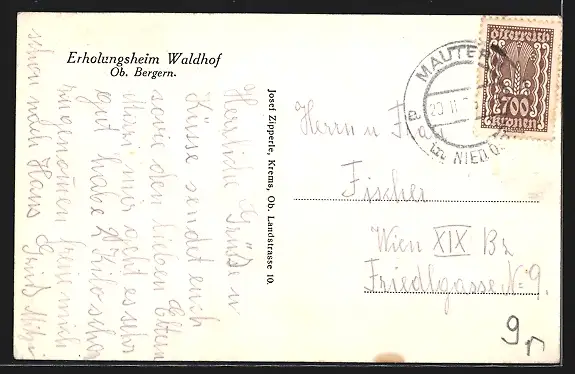 Erholungsheim Waldhof
Ob. Bergern.
Herzliche Grüße u
Küsse sendet euch
sowie den lieben Eltern
Mizzi mir geht es sehr
gut habe 2 Kilo schon
zugenommen freue mich
schon nach Haus
Josef Zipperle, Krems, Ob. Landstrasse 10.
österreich
700
kronen
MAUTERN
NIED.Ö
Herrn u
Fischer
Wien XIX Bz
Friedlgasse No 9.